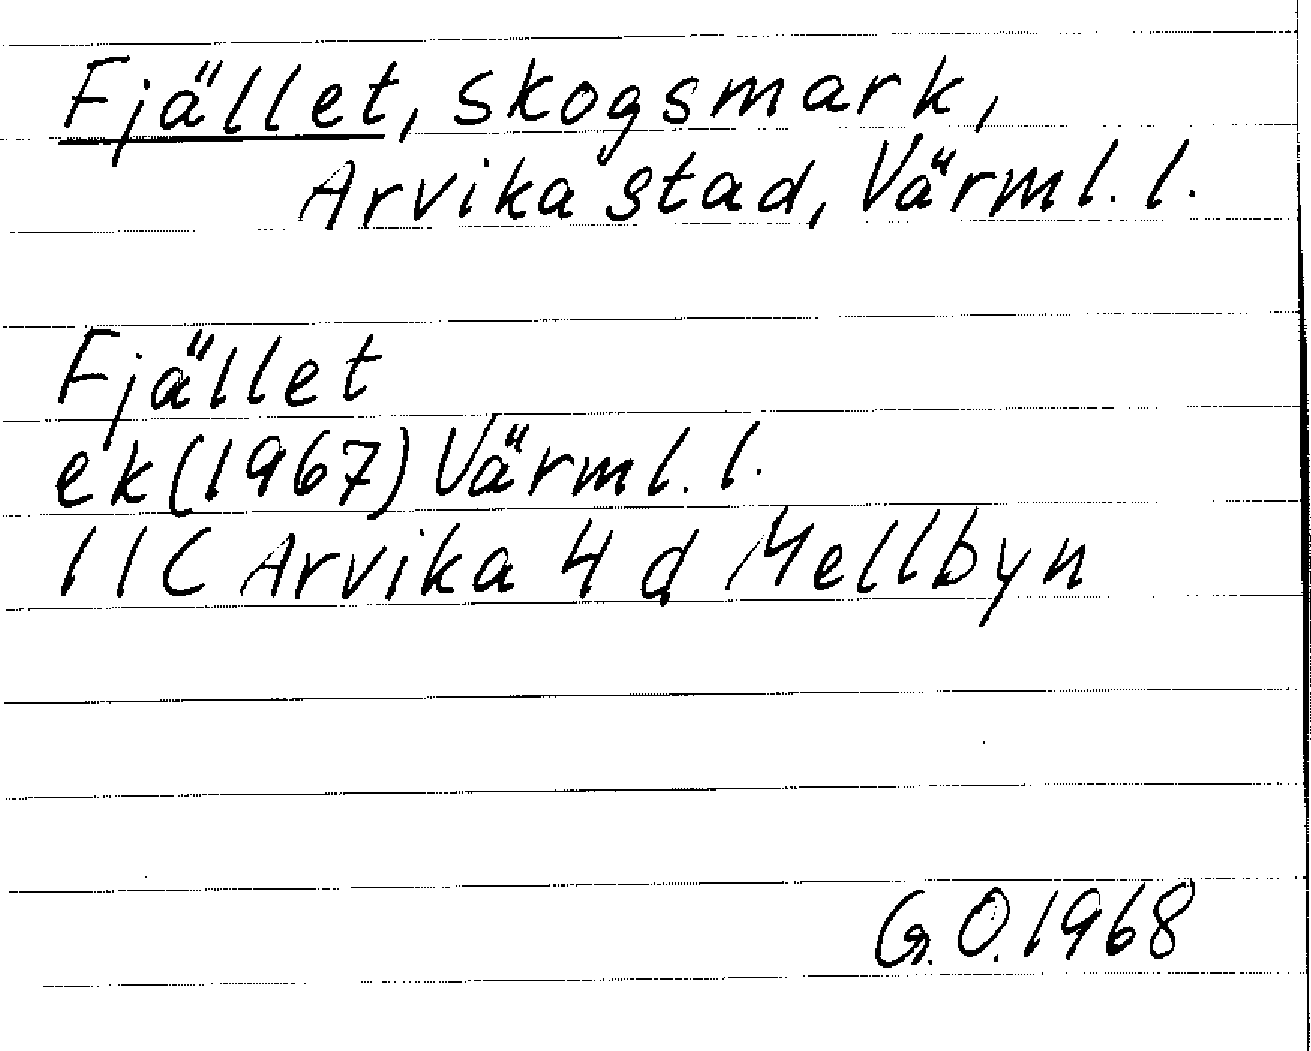 Fjället, skogsmark,
Arvika stad, Värml. l.
Fjället
ek (1967) Värml. l.
11C Arvika 4 d Mellbyn
G.O. 1968